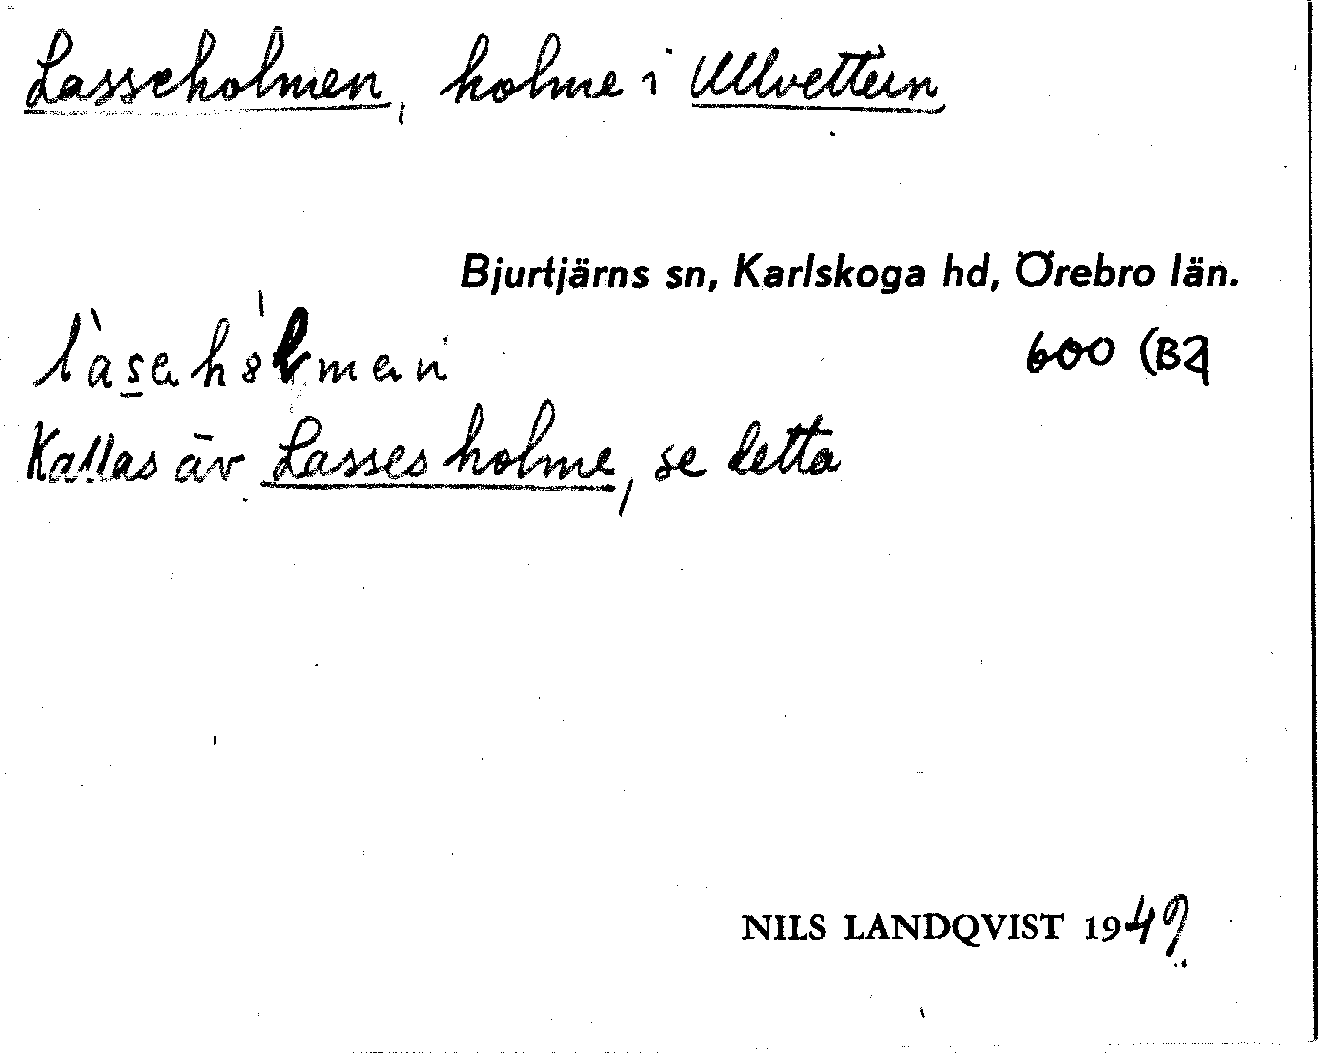 Lasseholmen, holme i Ullvettern
Bjurtjärns sn, Karlskoga hd, Örebro län.
600 (B2
Kallas äv Lassesholme, se detta
NILS LANDQVIST 1949